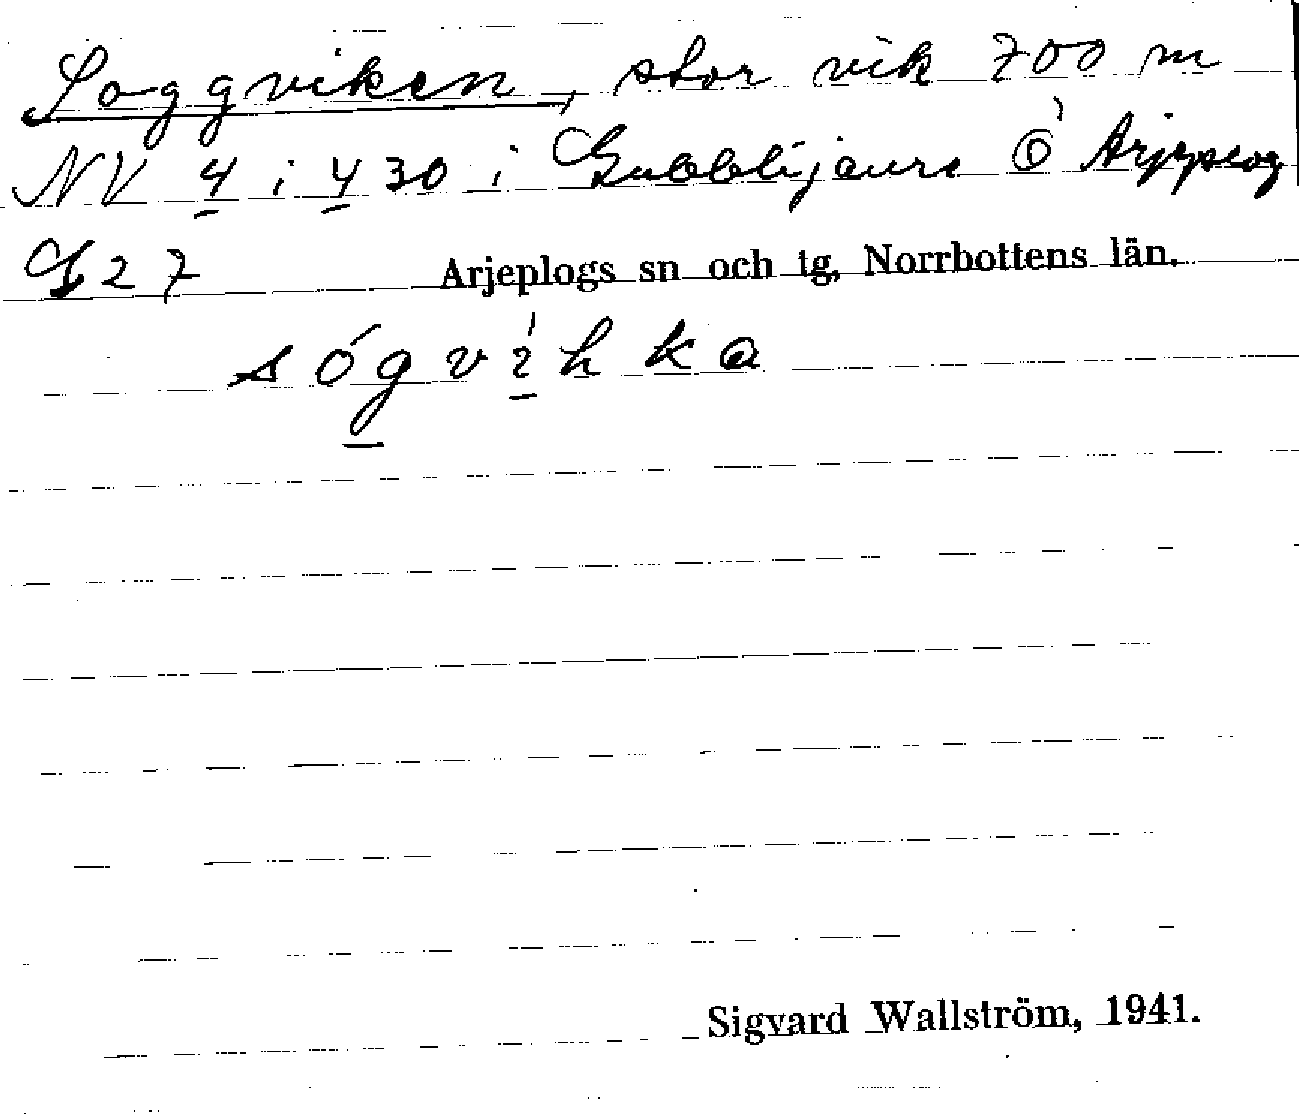 Soggviken, stor vik 700 m
NV 4 i 430 i Gubblijaure Ö Arjeplog
G27 Arjeplogs sn och tg, Norrbottens län.
sógvìhka
Sigvard Wallström, 1941.